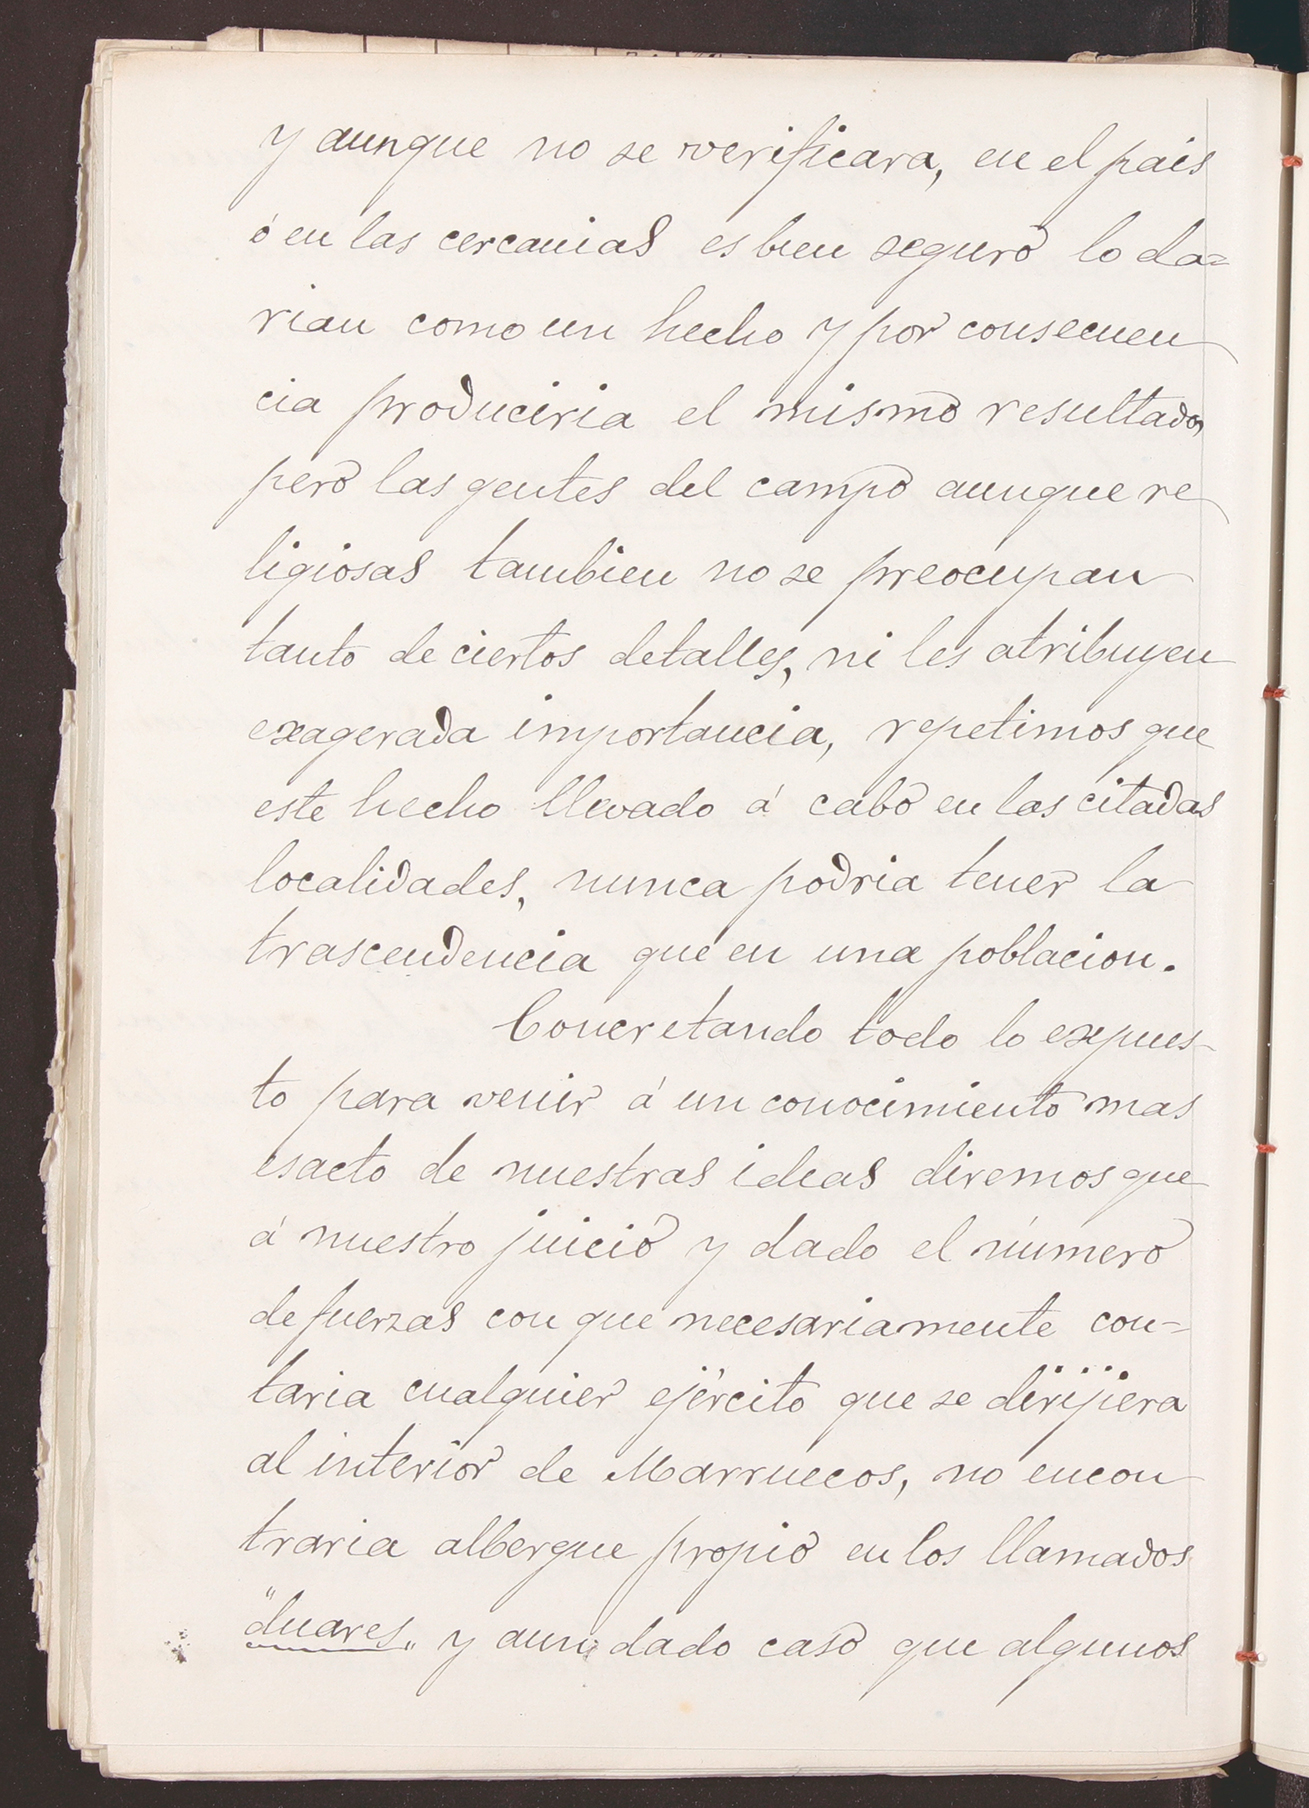 y aunque no se verificara, en el pais
ó en las cercanias es bien seguro lo da=
rian como un hecho y por consecuen
cia produciria el mismo resultado,
pero las gentes del campo aunque re
ligiosas tambien no se preocupan
tanto de ciertos detalles, ni les atribuyen
exagerada importancia, repetimos que
este hecho llevado á cabo en las citadas
localidades, nunca podria tener la
trascendencia que en una poblacion.
Concretando todo lo expues-
to para venir á un conocimiento mas
esacto de nuestras ideas diremos que
á nuestro juició y dado el número
de fuerzas con que necesariamente con=
taria cualquier ejército que se dirijiera
al interior de Marruecos, no encon
traria albergue propio en los llamados
"duares" y aun dado caso que algunos